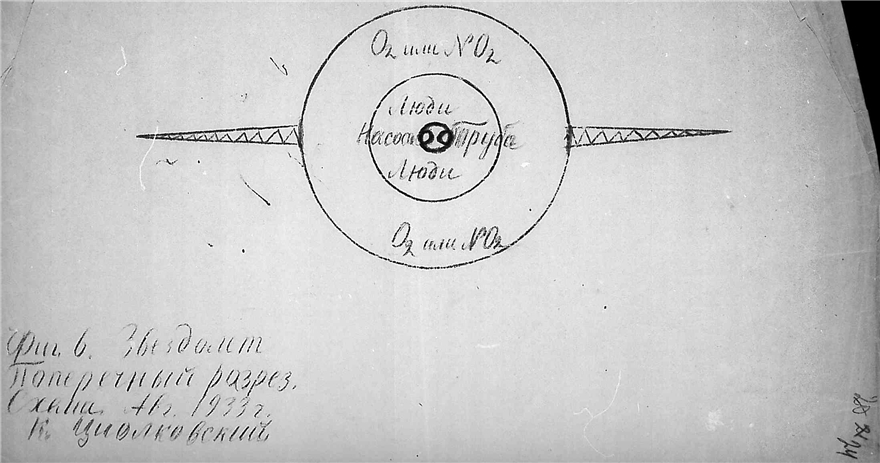 O₂ или NO₂
Люди
Насос Труба
Люди
O₂ или NO₂
Фиг 6. Звездолет
Поперечный разрез.
Схема. Авг. 1933 г.
К. Циолковский